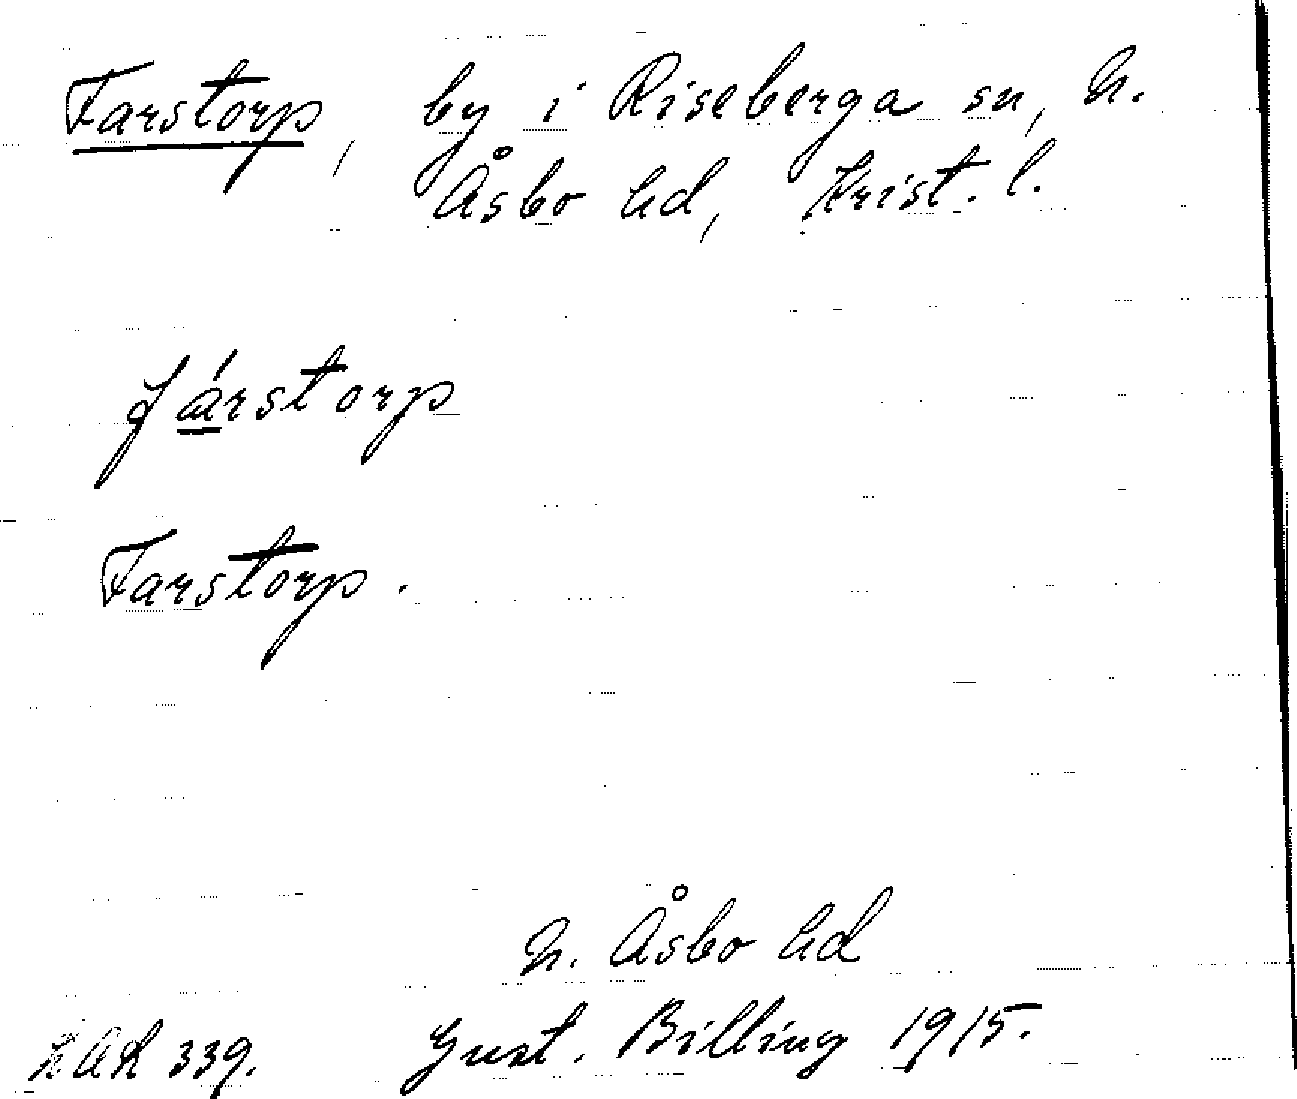 Farstorp, by i Riseberga sn, N.
Åsbo hd, Krist. l.
fárstorp
Farstorp.
N. Åsbo hd
LAL 339. Gust. Billing 1915.